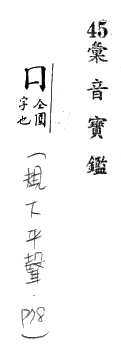 45彙音寶鑑
囗仝圍字也
(規下平聲·P78)